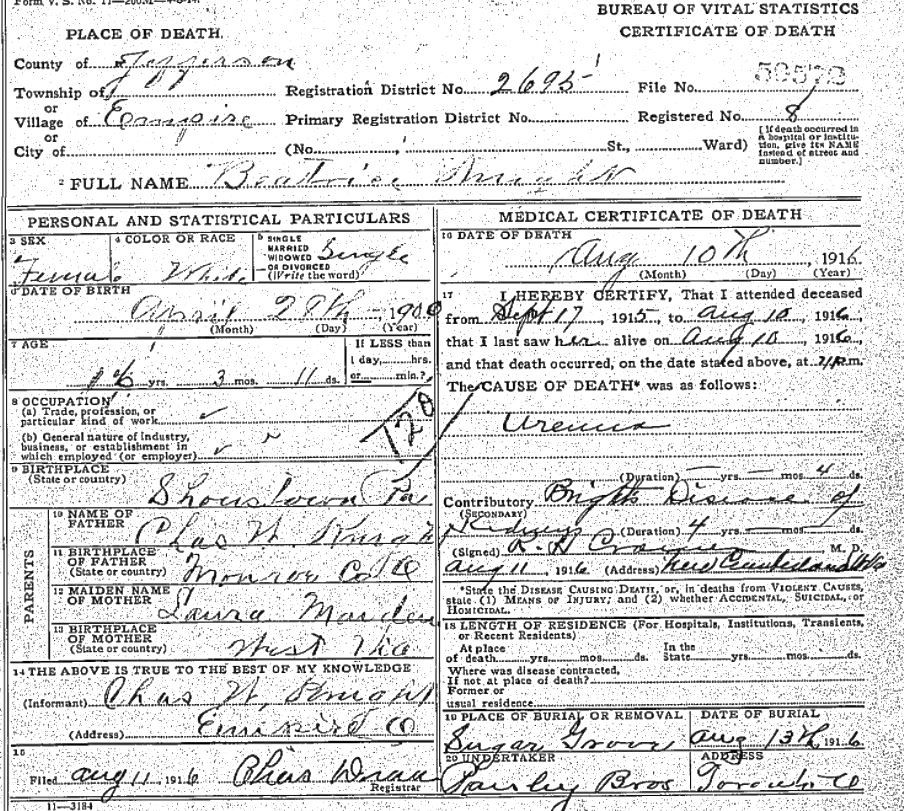 BUREAU OF VITAL STATISTICS
PLACE OF DEATH. CERTIFICATE OF DEATH
County of Jefferson
Township of Registration District No. 2695 File No.
or
Village of Empire Primary Registration District No. Registered No. 8
or
City of (No. St., Ward) [If death occurred in a hospital or institution, give its NAME instead of street and number.]
2 FULL NAME Beatrice Knight
PERSONAL AND STATISTICAL PARTICULARS
3 SEX 4 COLOR OR RACE 5 SINGLE MARRIED WIDOWED OR DIVORCED (Write the word) Single
Female White
6 DATE OF BIRTH
April 29th 1900
(Month) (Day) (Year)
7 AGE If LESS than
1 day, hrs.
16 yrs. 3 mos. 11 ds. or min.?
8 OCCUPATION
(a) Trade, profession, or
particular kind of work
(b) General nature of industry,
business, or establishment in
which employed (or employer)
120
9 BIRTHPLACE
(State or country)
Shoustown Pa
PARENTS
10 NAME OF
FATHER
Chas W Knight
11 BIRTHPLACE
OF FATHER
(State or country)
Monroe Co O
12 MAIDEN NAME
OF MOTHER
Laura Marden
13 BIRTHPLACE
OF MOTHER
(State or country)
West Va
14 THE ABOVE IS TRUE TO THE BEST OF MY KNOWLEDGE
(Informant) Chas W. Knight
(Address) Empire O
15
Filed Aug 11, 1916 Chas
Registrar
11—3184
MEDICAL CERTIFICATE OF DEATH
16 DATE OF DEATH
Aug 10th, 1916
(Month) (Day) (Year)
17 I HEREBY CERTIFY, That I attended deceased
from Sept 17, 1915, to Aug 10, 1916
that I last saw her alive on Aug 10, 1916
and that death occurred, on the date stated above, at m.
The CAUSE OF DEATH* was as follows:
Uremia
(Duration) yrs. mos. 4 ds.
Contributory Brights Disease of
(SECONDARY)
Kidney (Duration) 4 yrs. mos. ds.
(Signed) M. D.
Aug 11, 1916 (Address) New Cumberland W Va
*State the DISEASE CAUSING DEATH, or, in deaths from VIOLENT CAUSES,
state (1) MEANS OF INJURY; and (2) whether ACCIDENTAL, SUICIDAL, or
HOMICIDAL.
18 LENGTH OF RESIDENCE (For Hospitals, Institutions, Transients,
or Recent Residents)
At place In the
of death yrs. mos. ds. State yrs. mos. ds.
Where was disease contracted,
If not at place of death?
Former or
usual residence
19 PLACE OF BURIAL OR REMOVAL DATE OF BURIAL
Sugar Grove Aug 13th, 1916
20 UNDERTAKER ADDRESS
Bros Toronto O